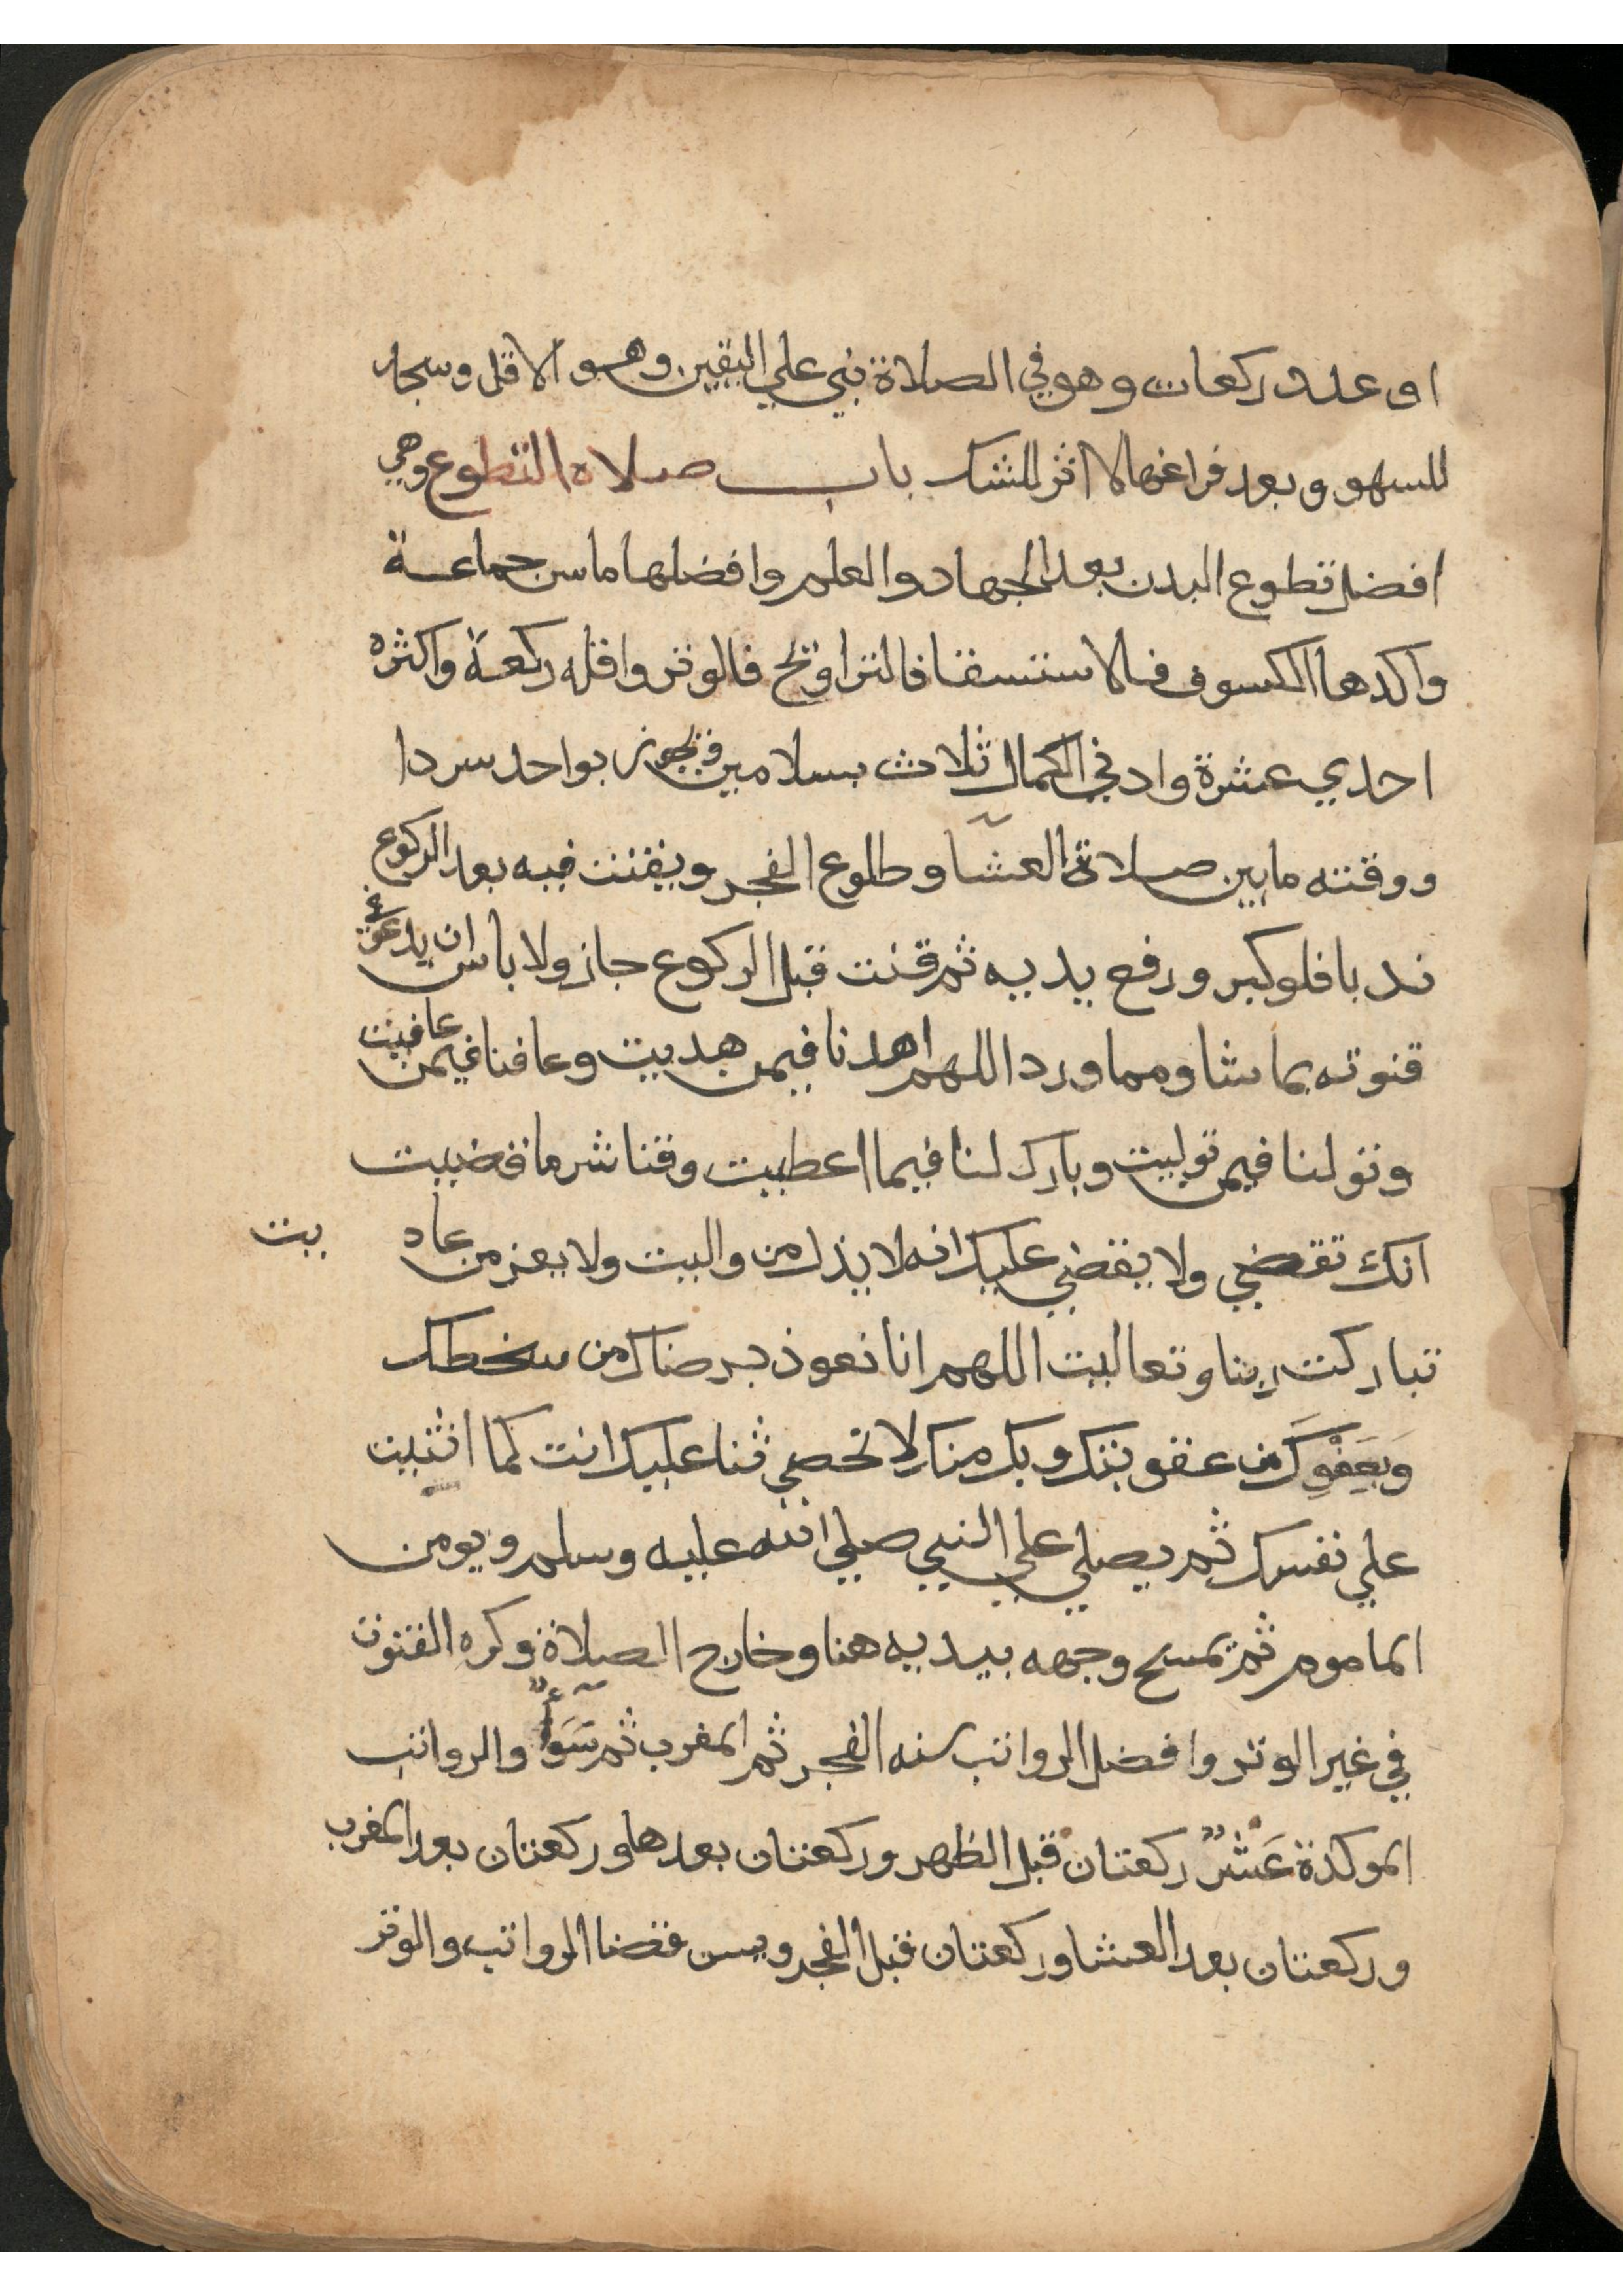 او عدد ركعات وهو في الصلاة بني علي اليقين وهو الاقل وسجد
للسهو وبعد فراغها لا اثر للشك باب صلاه التطوع وهي
افضل تطوع البدن بعد الجهاد والعلم وافضلها ما سن جماعة
واكدها الكسوف فالاستسقا فالتراوتح فالوتر واقله ركعة واكثره
احدي عشرة وادني الكمال ثلاث بسلامين ويجوز بواحد سردا
ووقته مابين صلاة العشا وطلوع الفجر ويقنت فيه بعد الركوع
ندبا فلو كبر ورفع يديه ثم قنت قبل الركوع جاز ولا باس ان يدعو في
قنوته بما شا ومما ورد اللهم اهدنا فيمن هديت وعافنا فيمن عافيت
وتولنا فيمن توليت وبارك لنا فيما اعطيت وقنا شر ما قضيت
انك تقضي ولا يقضي عليك انه لا يذل من واليت ولا يعز من عاد يت
تباركت ربنا وتعاليت اللهم انا نعوذ برضاك من سخطك
وَبِعَفْوِكَ من عقوبتك وبك منك لا نحصي ثنا عليك انت كما اثنيت
علي نفسك ثم يصلي علي النبي صلي الله عليه وسلم ويومن
الماموم ثم يمسح وجهه بيديه هنا وخارج الصلاة وكره القنوت
في غير الوتر وافضل الرواتب سنه الفجر ثم المغرب ثم سَوَاءٌ والرواتب
الموكدة عَشْرٌ ركعتان قبل الظهر وركعتان بعدها وركعتان بعد المغرب
وركعتان بعد العشا وركعتان قبل الفجر ويسن قضا الرواتب والوتر